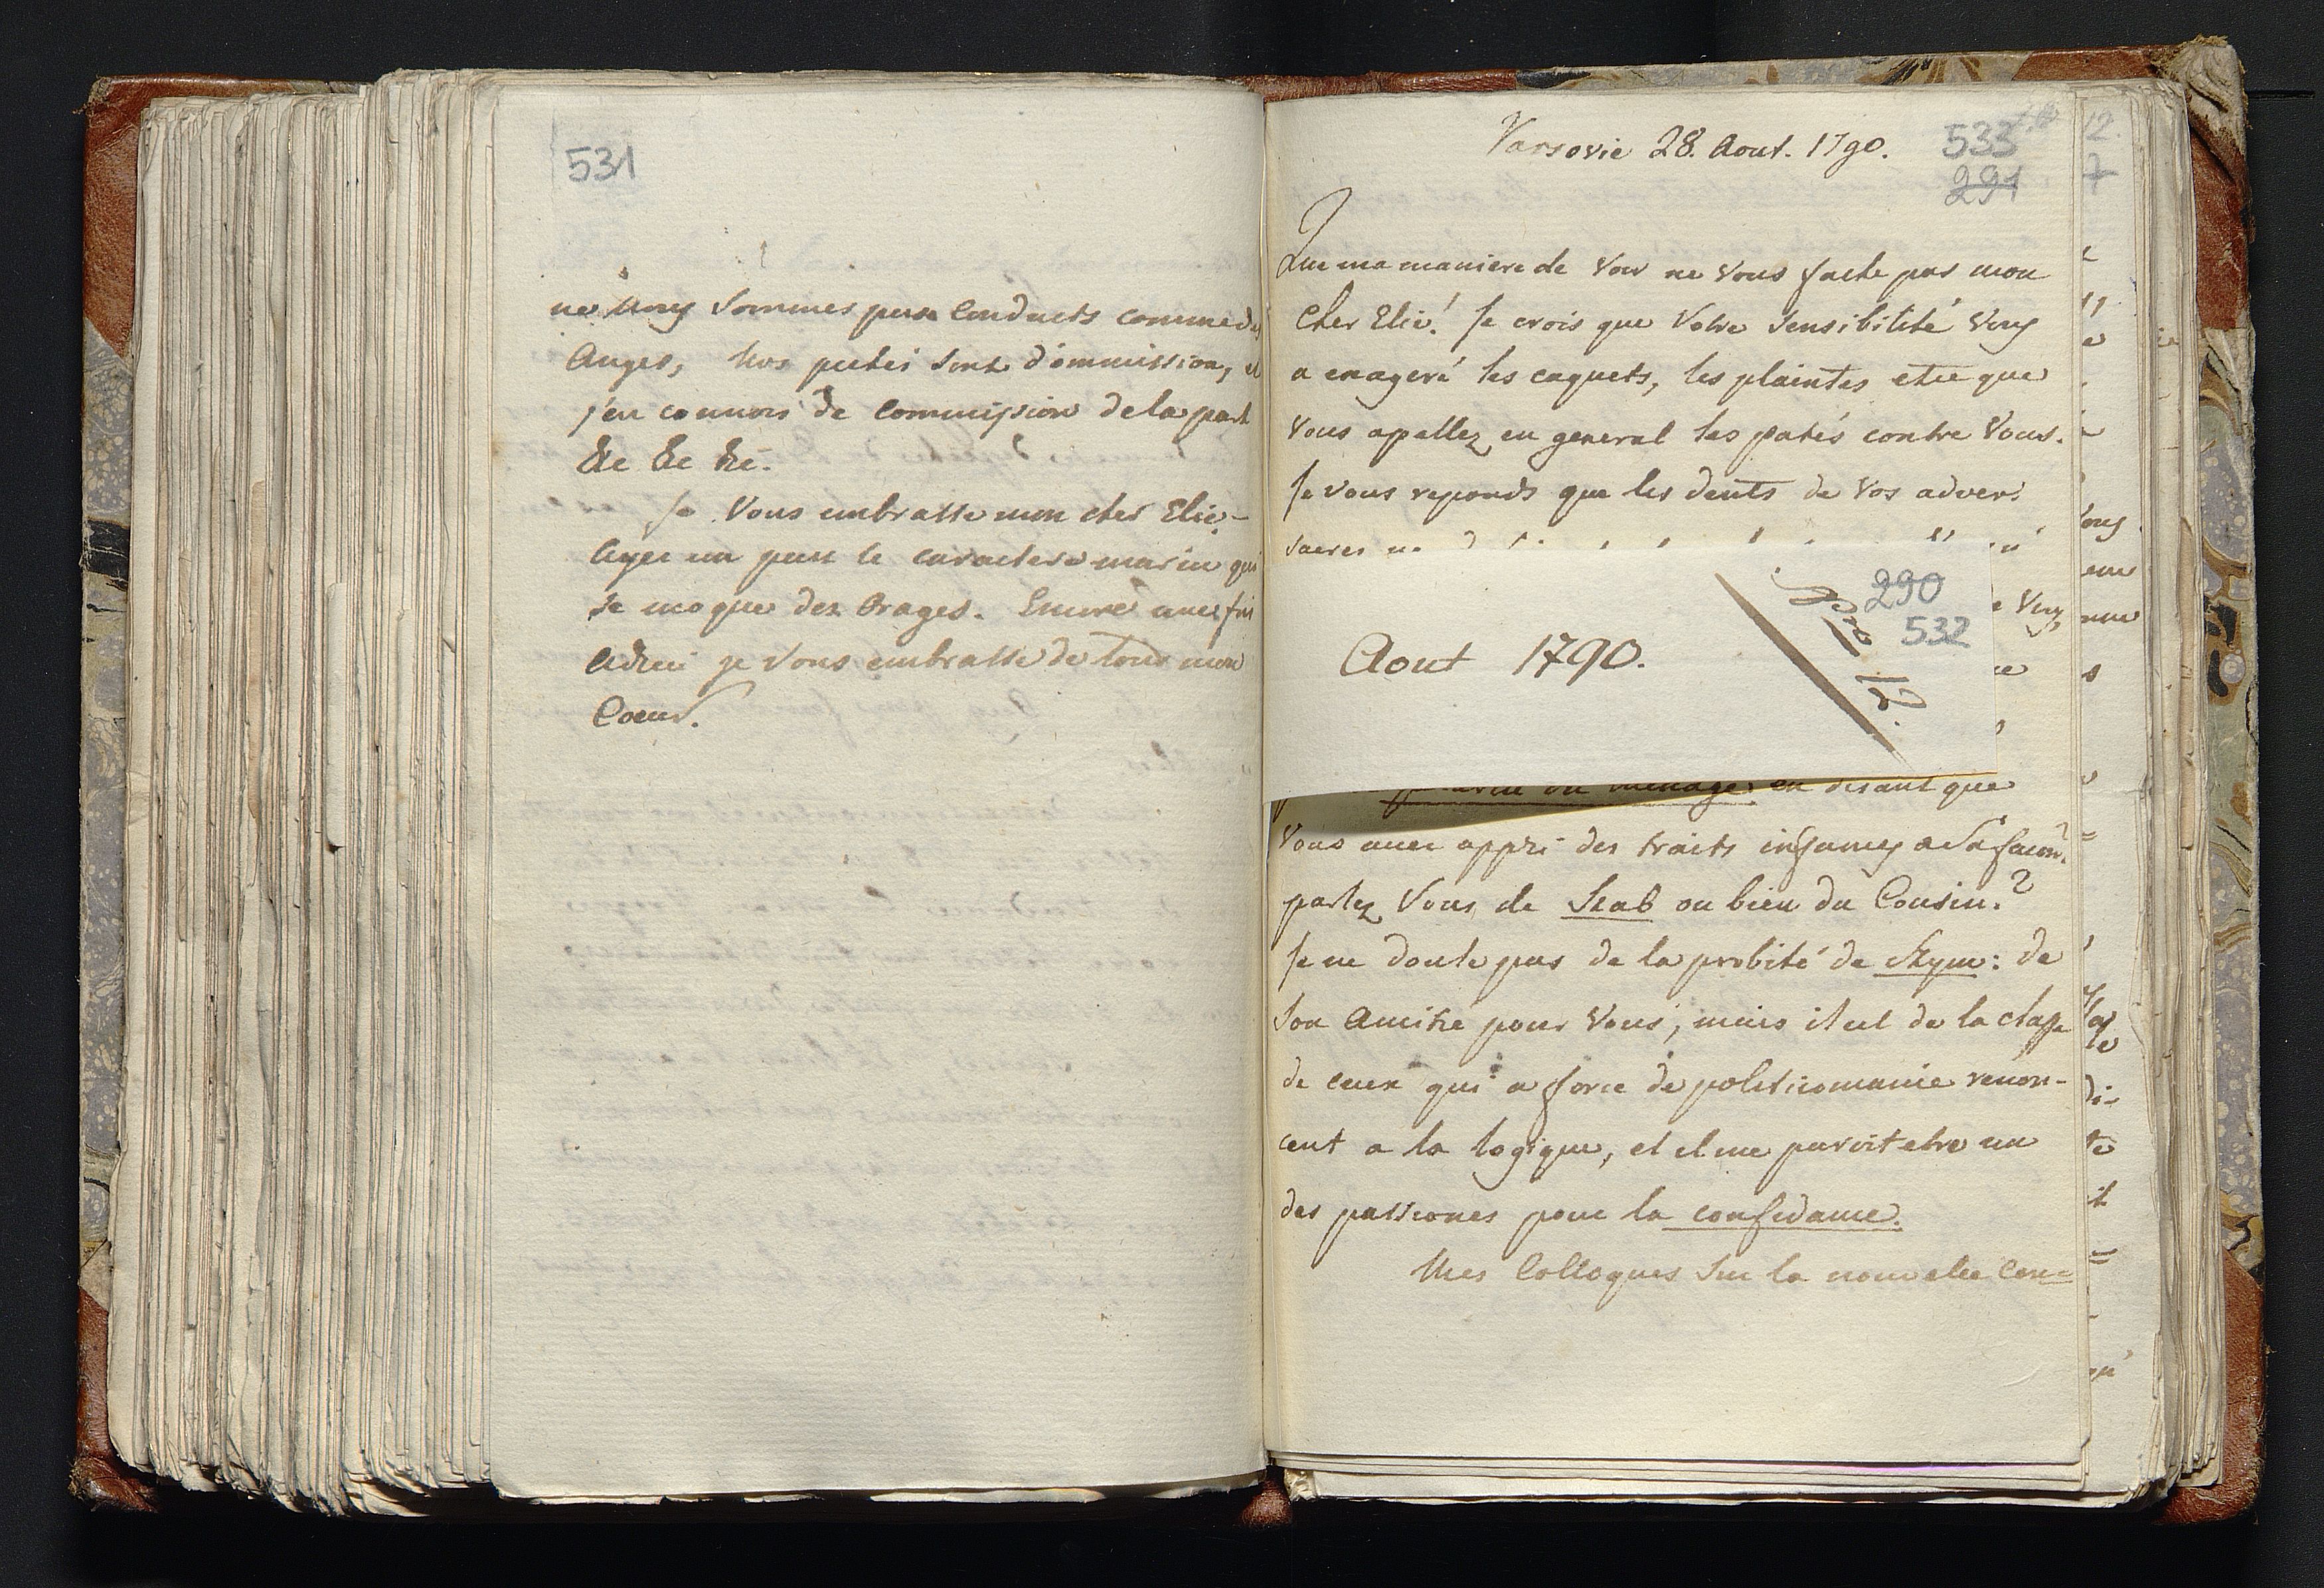 531
ne nous sommes pas conduits comme des
Anges, Nos pechés sont d'ommission, et
j'en connois de commission de la part
&c &c &c.
Je Vous embrasse mon cher Elie.-
Ayez un peu le caractere marin qui
se moque des Orages. Encore une fois
adieu je Vous embrasse de tout mon
Coeur.
Varsovie 28. Aout. 1790.
533
291
Que ma maniere de voir ne Vous fache pas mon
Cher Elie! Je crois que Votre Sensibilité Vous
a exageré les caquets, les plaintes et ce que
Vous apellez en general les patés contre Vous.
Je vous reponds que les dents de Vos adver-
saires
290
532
Nro 12.
Aout 1790.
du menage, en disant que
Vous avez appri des traits infames a Sa façon.
parlez Vous de Stab ou bien du Cousin?
Je ne doute pas de la probité de Rym: de
Son Amitié pour Vous, mais il est de la classe
de ceux qui a force de politicomanie renon-
cent a la logique, et il me paroit etre un
des passionés pour la confidance.
Mes Colloques Sur la nouvelle Con=